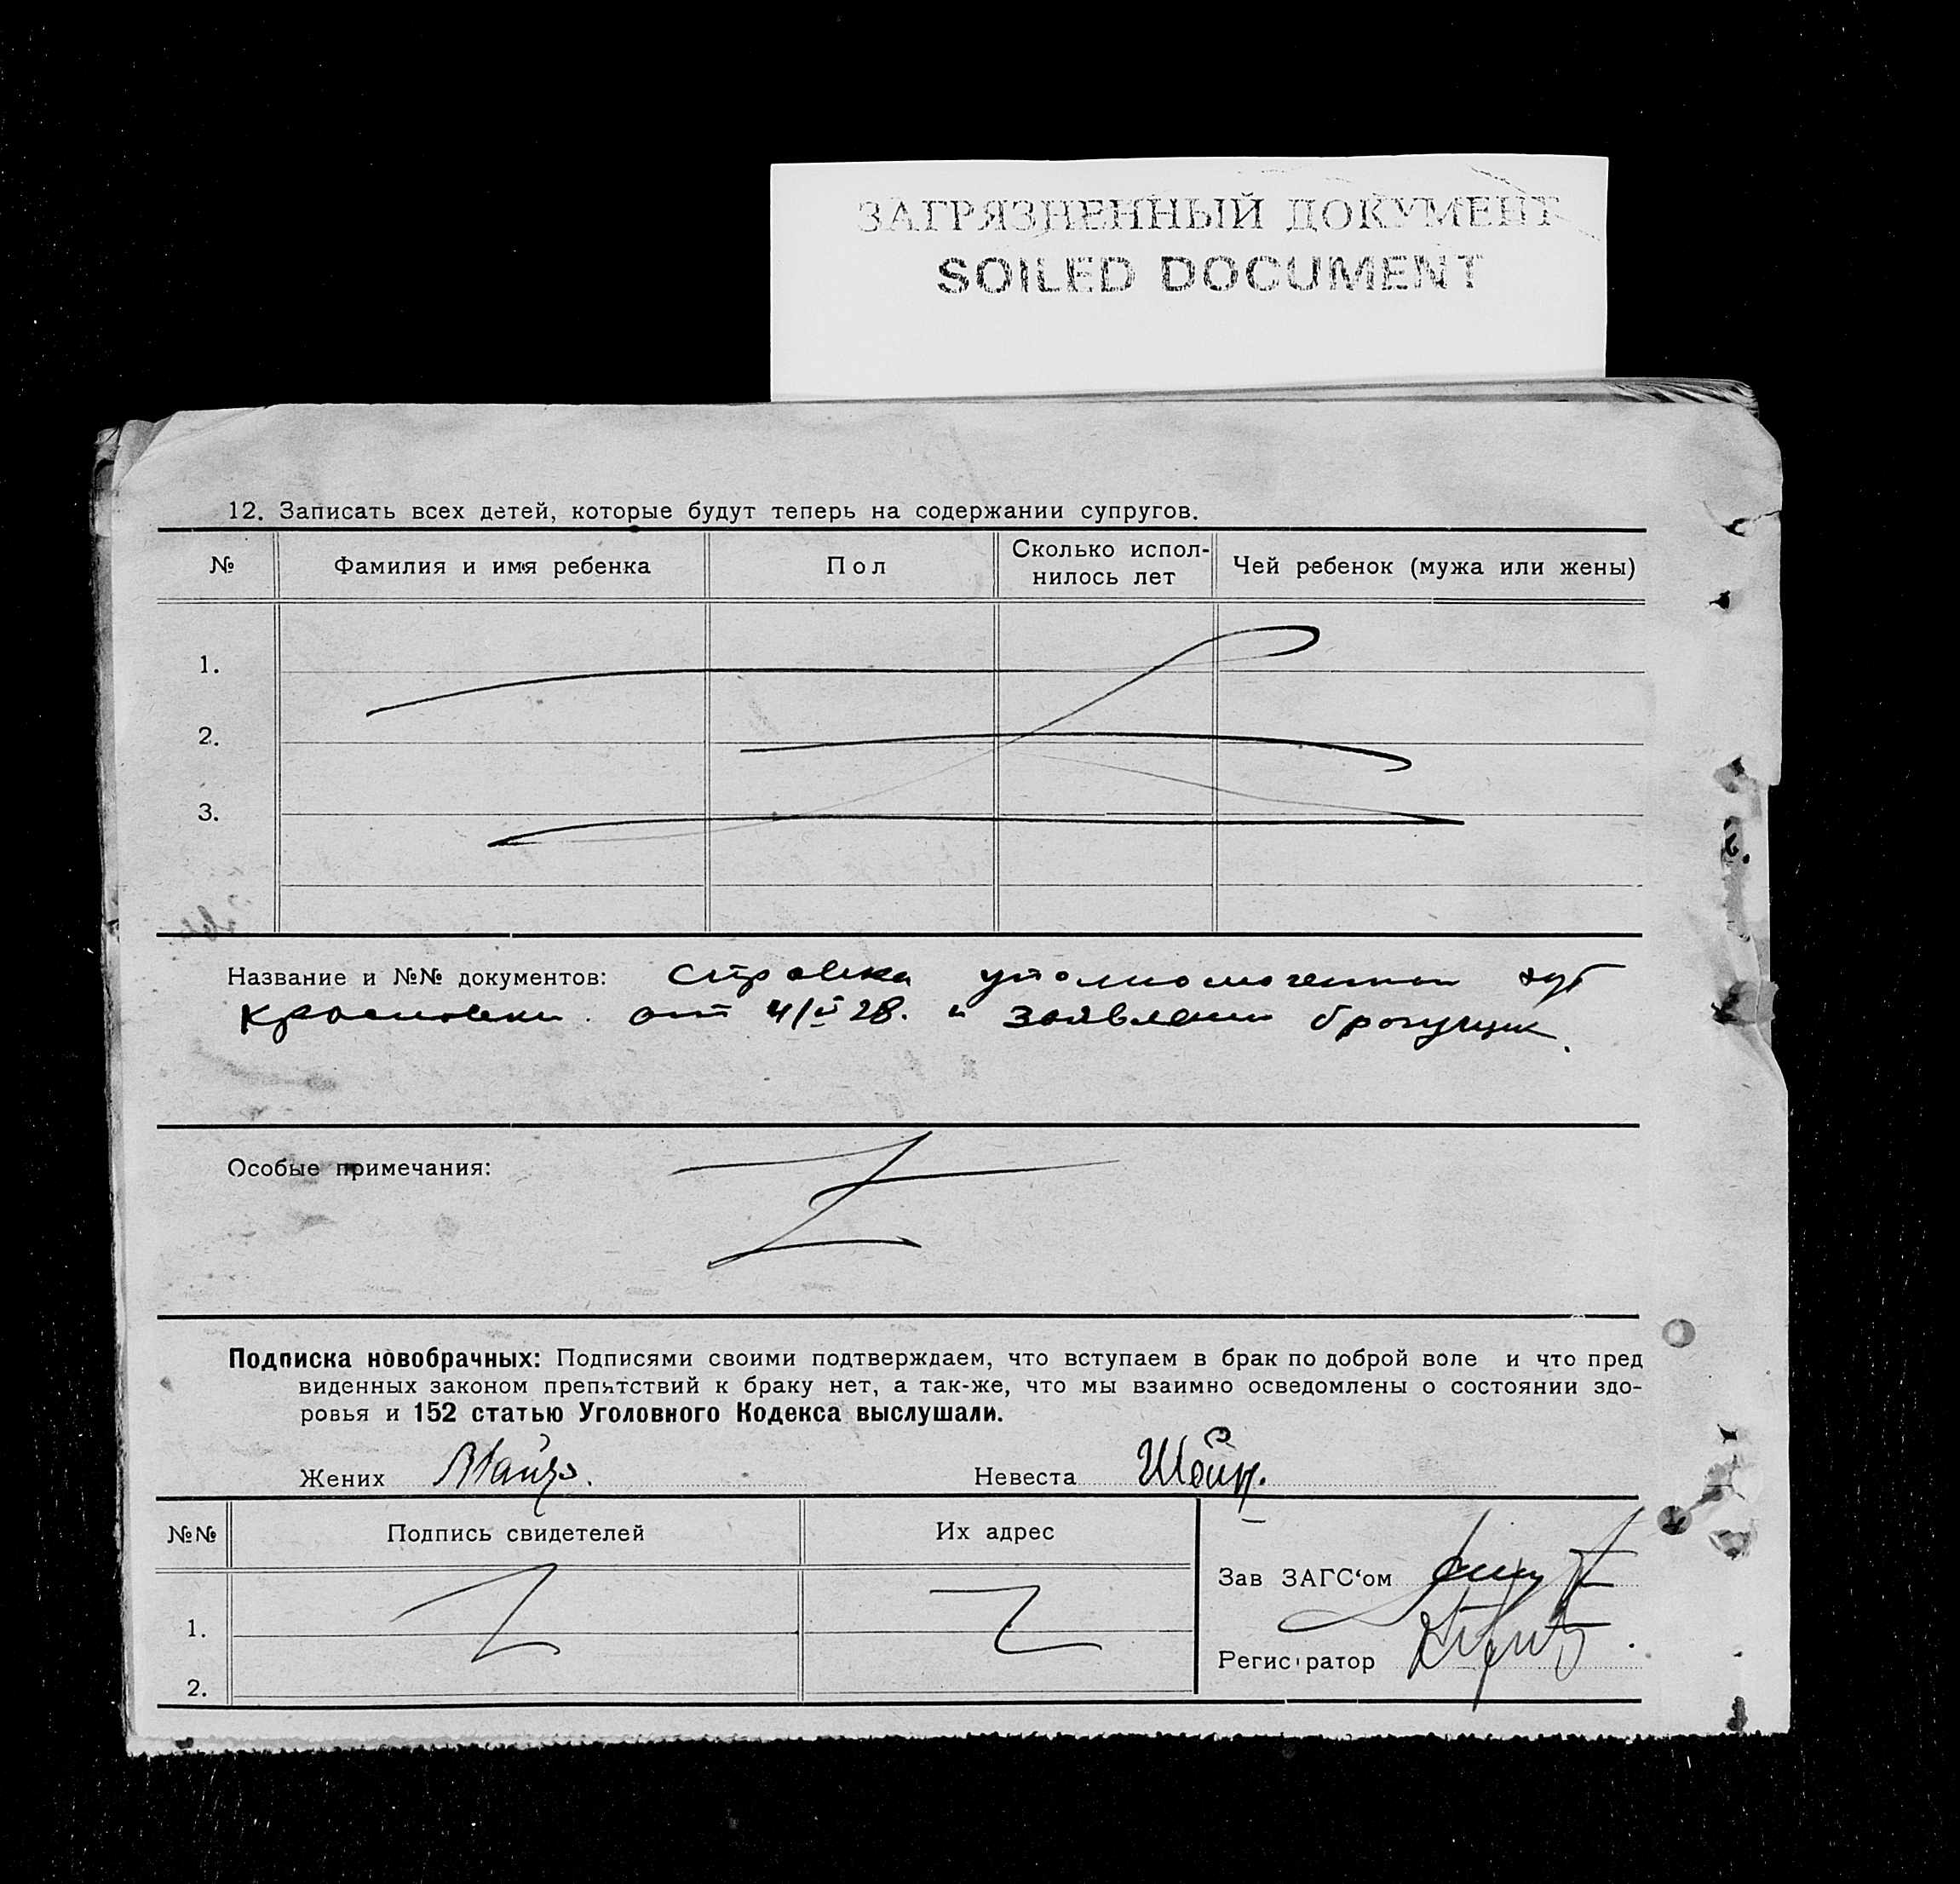 ЗАГРЯЗНЕННЫЙ ДОКУМЕНТ
SOILED DOCUMENT
12. Записать всех детей, которые будут теперь на содержании супругов.
№ Фамилия и имя ребенка Пол Сколько испол- Чей ребенок (мужа или жены)
нилось лет
1.
2.
3.
Название и №№ документов: справка уполномоченного хут
от 4/ 28. и заявления брачущихся
Особые примечания:
Подписка новобрачных: Подписями своими подтверждаем, что вступаем в брак по доброй воле и что пред
виденных законом препятствий к браку нет, а так-же, что мы взаимно осведомлены о состоянии здо-
ровья и 152 статью Уголовного Кодекса выслушали.
Жених Невеста
№№ Подпись свидетелей Их адрес
Зав ЗАГС'ом
1.
Регистратор
2.